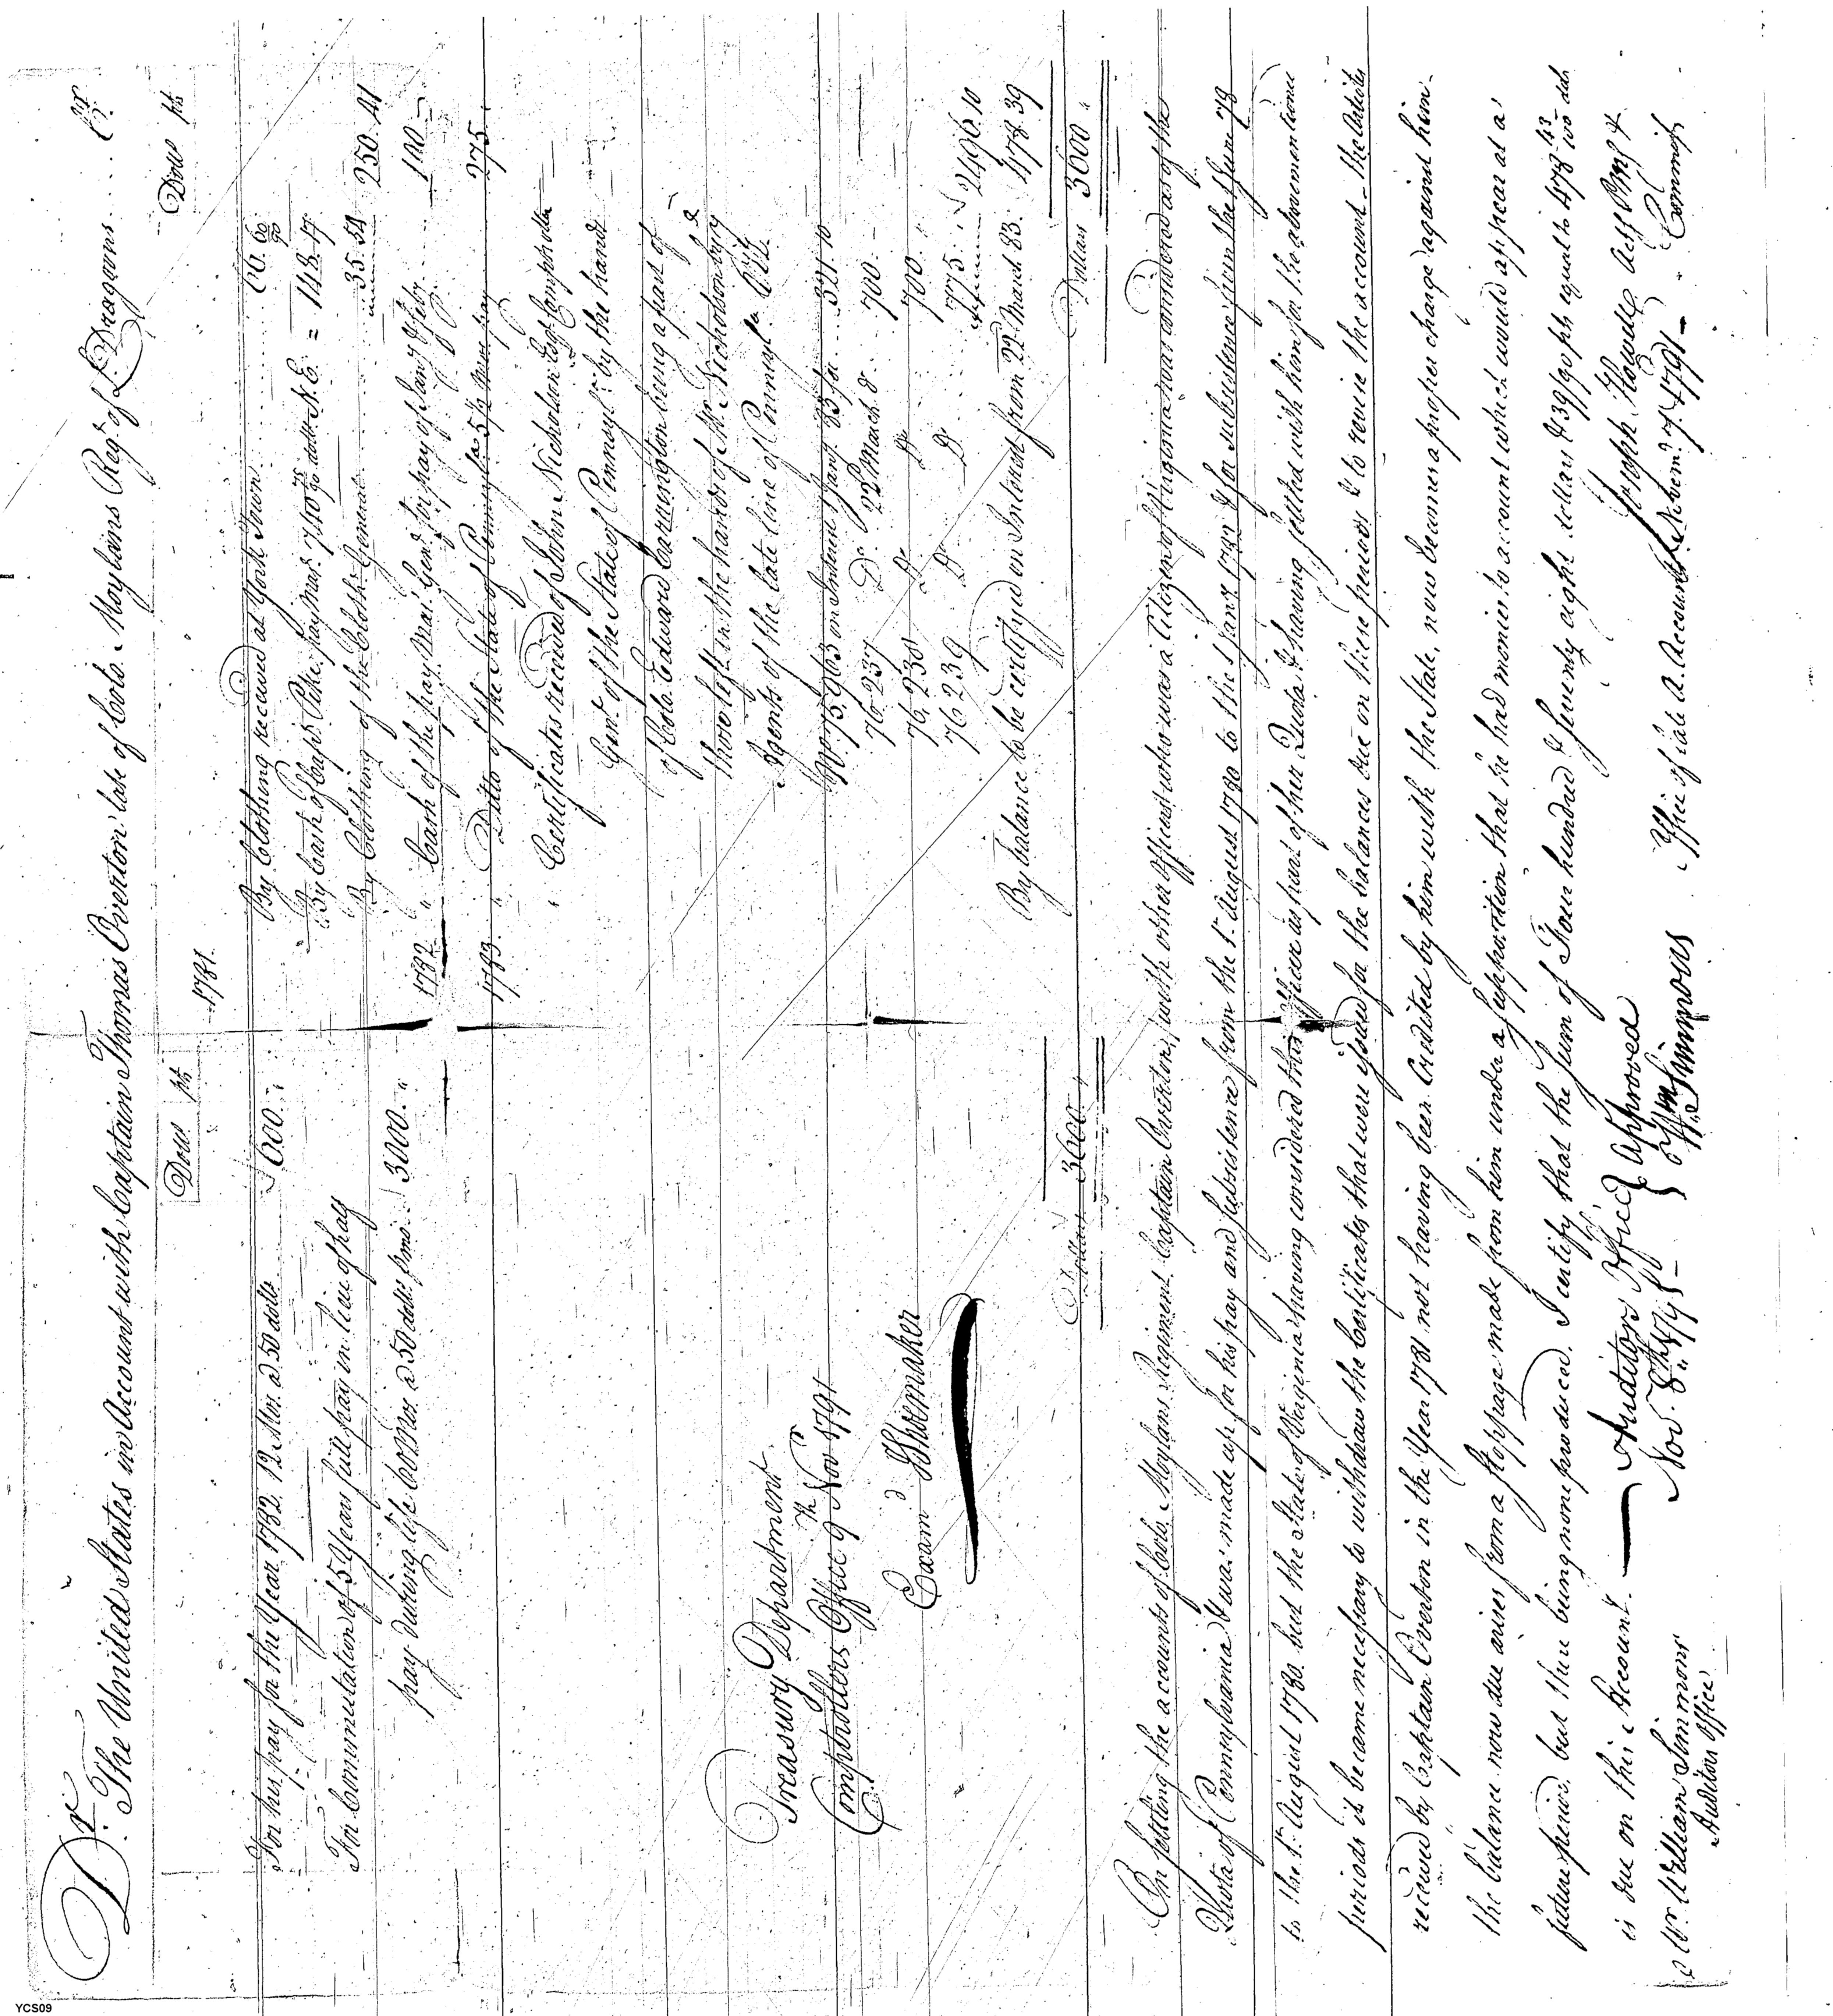 Dr. The United States in Account with Captain Thomas Overton late of Colo. Moylans Regt. of L. Dragoons .... Cr.
Dolls pts
For his pay for the Year 1782. 12 Mos. a 50 dolls 600. "
For Commutation of 5 Years full pay in lieu of half
pay during life 60 Mos. a 50 dolls p mo. 3000. "
Treasury Department
Comptrollers Office 9th Nov 1791
Examd Shoemaker
Dollars 3600
Dolls pts
1781.
By Clothing received at York Town 66. 60/90
By Cash of Capt Pike, pay Mar. 710 dolls N.E. = 148. 17
By Clothing of the Clothr. General 35. 54 250. 41
1782 " Cash of the pay Mar. Genl. for pay of Jany & Feby 100 -
1783. " Ditto of the State of Pennsyla. for 5 1/2 Mos. pay 275. "
" Certificates received of John Nicholson Esqr. Comptroller
Genl of the State of Pennsyla. by the hands
of Colo. Edward Carrington being a part of
those left in the hands of Mr. Nicholson by
Agents of the late line of Pennsyla. Viz.
No. 75,963 on Interest Jany. 83 for ... 321. 10
76,237 Do. 22d March Do. 700. -
76,238 Do. Do. 700. "
76,239 Do. Do. 775. " 2496. 10
By balance to be certifyed on Interest from 22d March 83. 478. 39
Dollars 3600 "
On settling the accounts of Colo. Moylans Regiment Captain Overton, with other Officers who was a Citizen of Virginia was considered as of the
Quota of Pennsylvania & was made up for his pay and subsistence from the 1st. August 1780 to the 1 Jany 1782 & for subsistence from the 1 June 78
to the 1st. August 1780. but the State of Virginia having considered this Officer as part of their Quota & having settled with him for the abovementioned
periods it became necessary to withdraw the Certificates that were issued for the balances due on these periods & to revise the account - the articles
received by Captain Overton in the Year 1781 not having been Credited by him with the State, now becomes a proper charge against him.
the balance now due arises from a stoppage made from him under a supposition that he had monies to account which would appear at a
future period, but there being none produced. I certify that the Sum of Four hundred & seventy eight dollars & 39/90 pts equal to 478 43/100 dols
is due on this Account.
Auditors Office
Nov. 8th 1791 -
Approved
Wm Simmons
Joseph Howell
Office of late A. Accounts Novemr. 7. 1791 -
Mr. William Simmons
Auditors Office